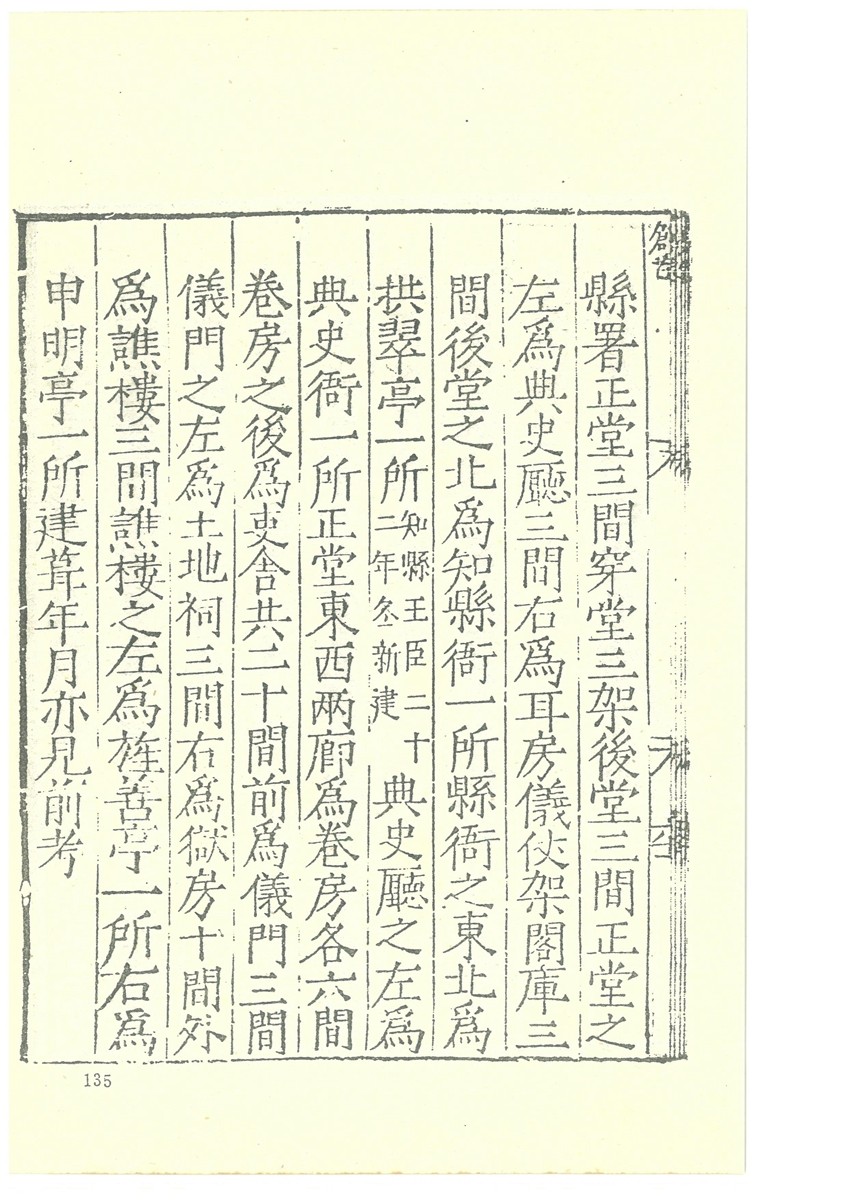 縣署正堂三間穿堂三架後堂三間正堂之
左爲典史廳三間右爲耳房儀仗架閣庫三
間後堂之北爲知縣衙一所縣衙之東北爲
拱翠亭一所知縣王臣二十二年冬新建典史廳之左爲
典史衙一所正堂東西兩廊爲卷房各六間
卷房之後爲吏舍共二十間前爲儀門三間
儀門之左爲土地祠三間右爲獄房十間外
爲譙樓三間譙樓之左爲旌善亭一所右爲
申明亭一所建葺年月亦見前考
135